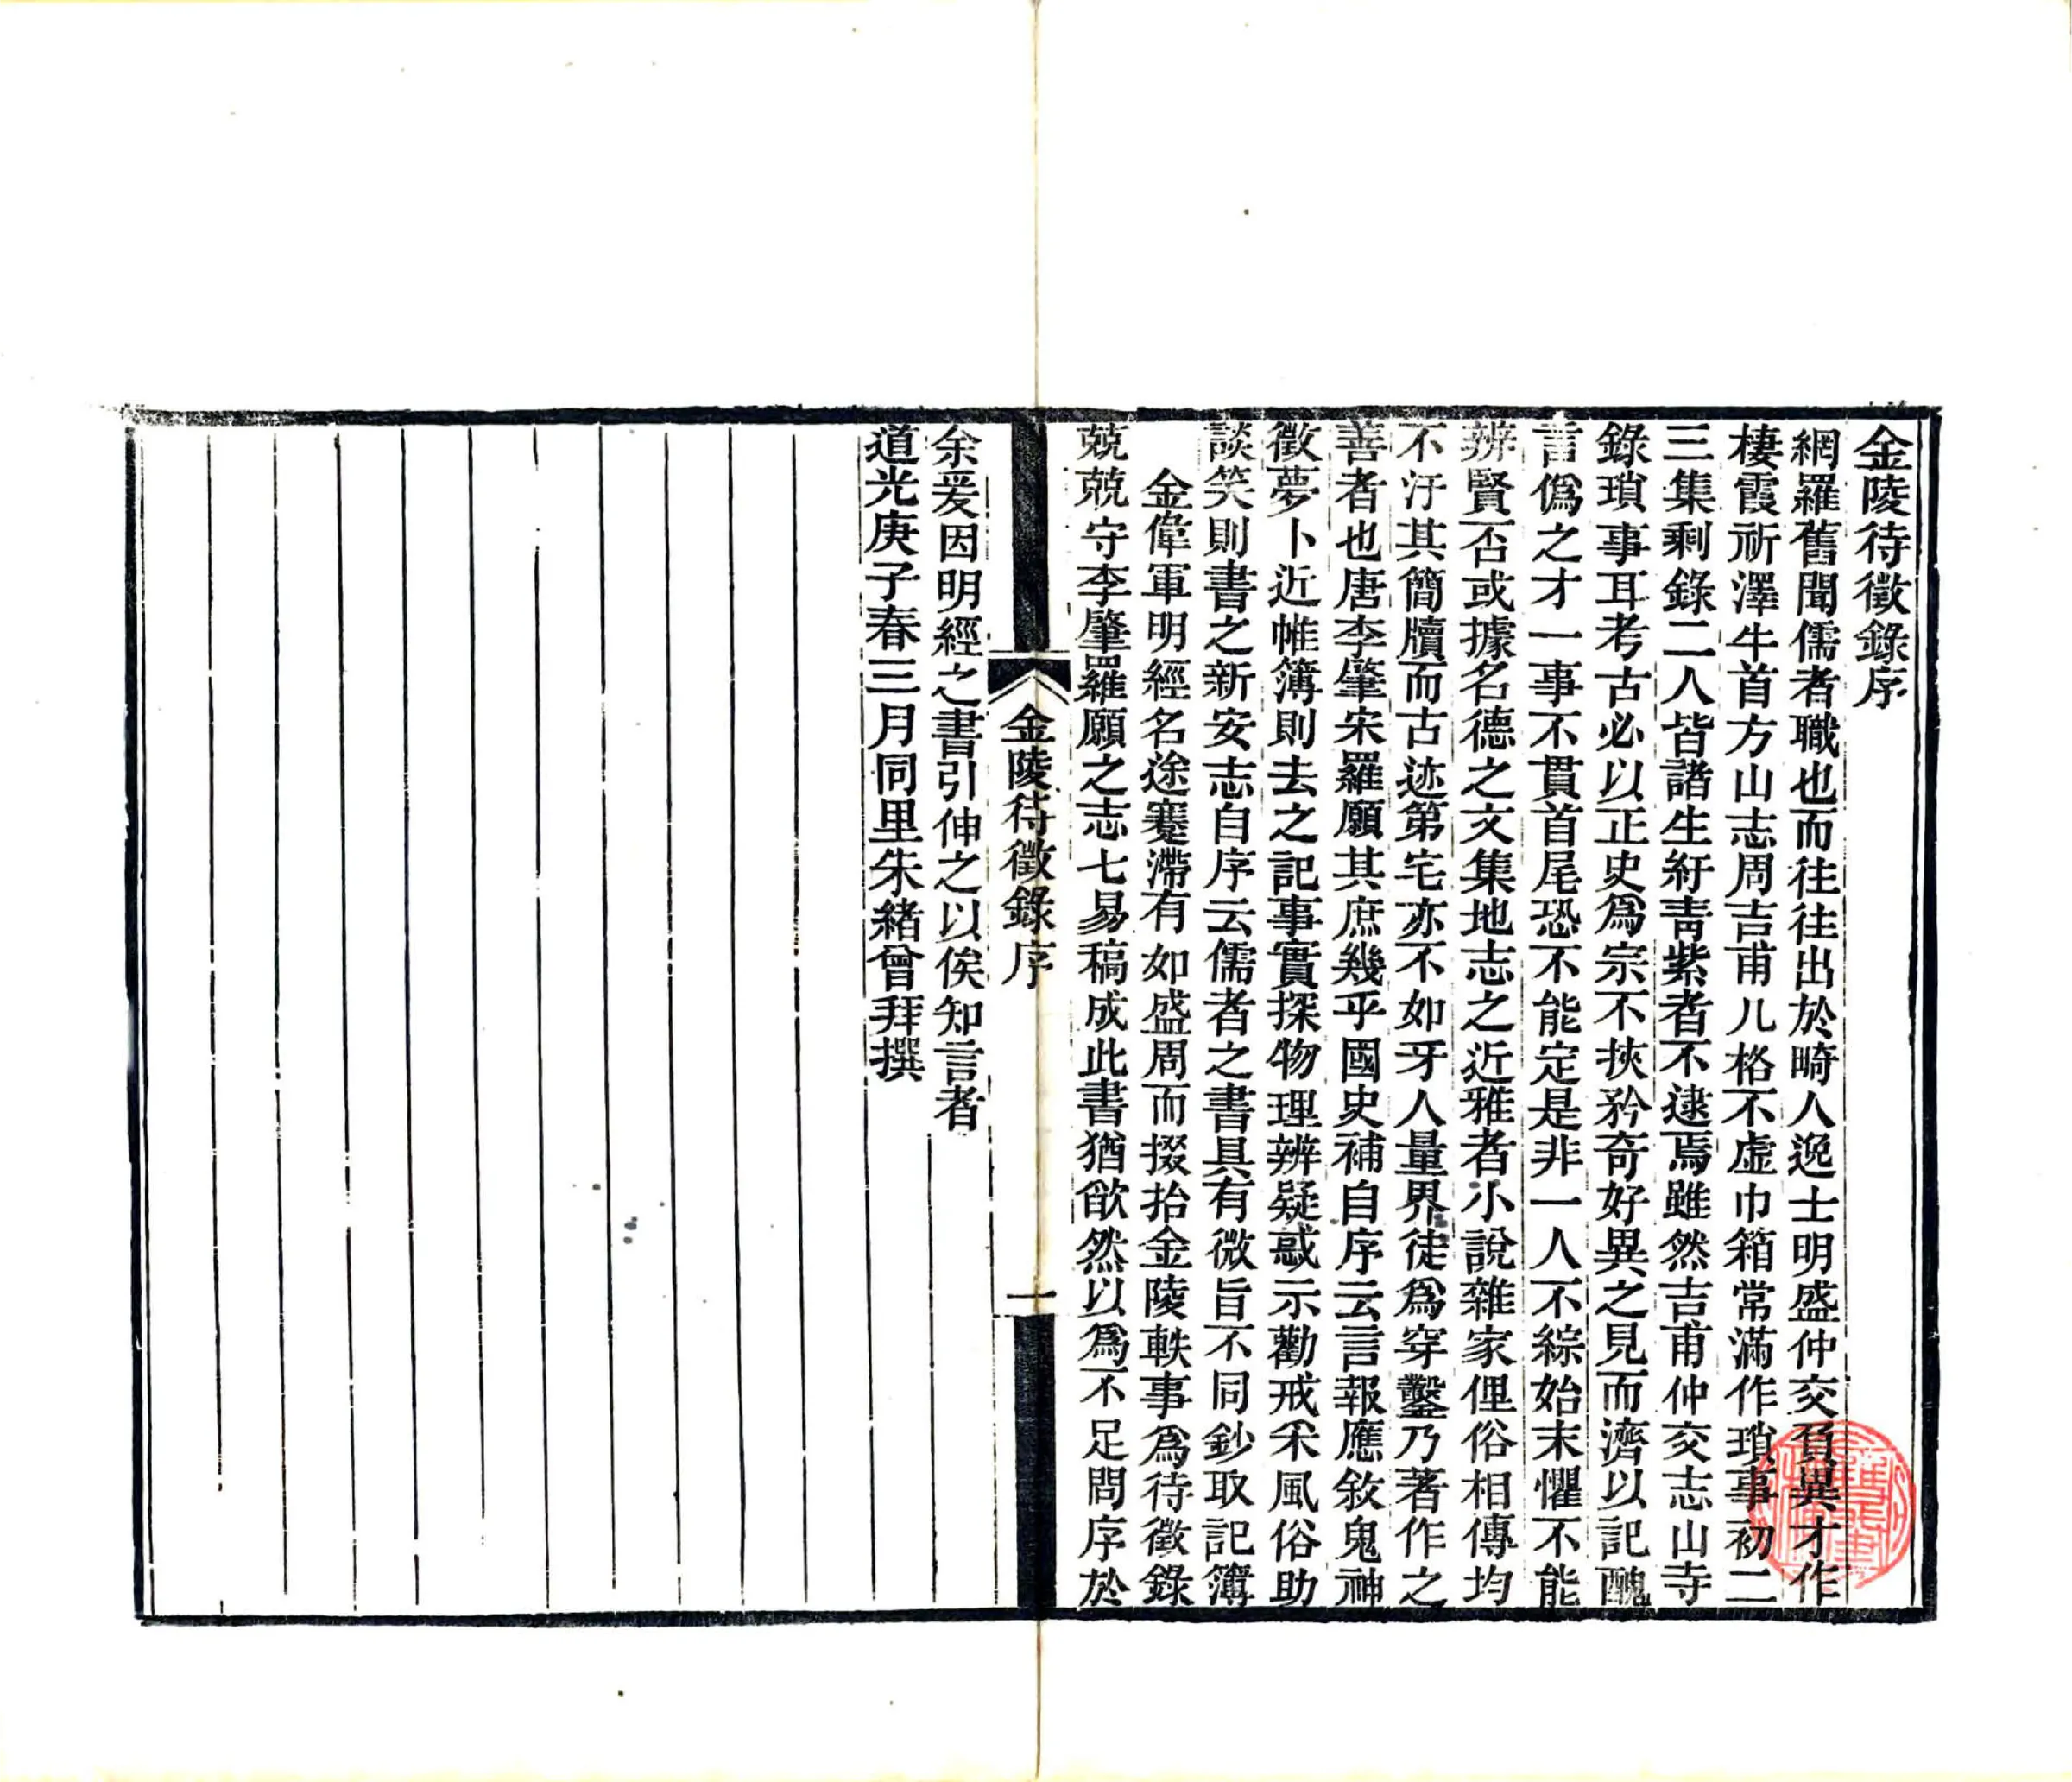 金陵待徵錄序
網羅舊聞儒者職也而往往出於畸人逸士明盛仲交負異才作
棲霞祈澤牛首方山志周吉甫几格不虛巾箱常滿作瑣事初二
三集剩錄二人皆諸生紆靑紫者不逮焉雖然吉甫仲交志山寺
錄瑣事耳考古必以正史爲宗不挾矜奇好異之見而濟以記醜
言僞之才一事不貫首尾恐不能定是非一人不綜始末懼不能
辨賢否或據名德之文集地志之近雅者小說雜家俚俗相傳均
不汙其簡牘而古迹第宅亦不如牙人量界徒爲穿鑿乃著作之
善者也唐李肇宋羅願其庶幾乎國史補自序云言報應敘鬼神
徵夢卜近帷簿則去之記事實探物理辨疑惑示勸戒采風俗助
談笑則書之新安志自序云儒者之書具有微旨不同鈔取記簿
金偉軍明經名途蹇滯有如盛周而掇拾金陵軼事爲待徵錄
兢兢守李肇羅願之志七易稿成此書猶欿然以爲不足問序於
金陵待徵錄序
一
余爰因明經之書引伸之以俟知言者
道光庚子春三月同里朱緒曾拜撰